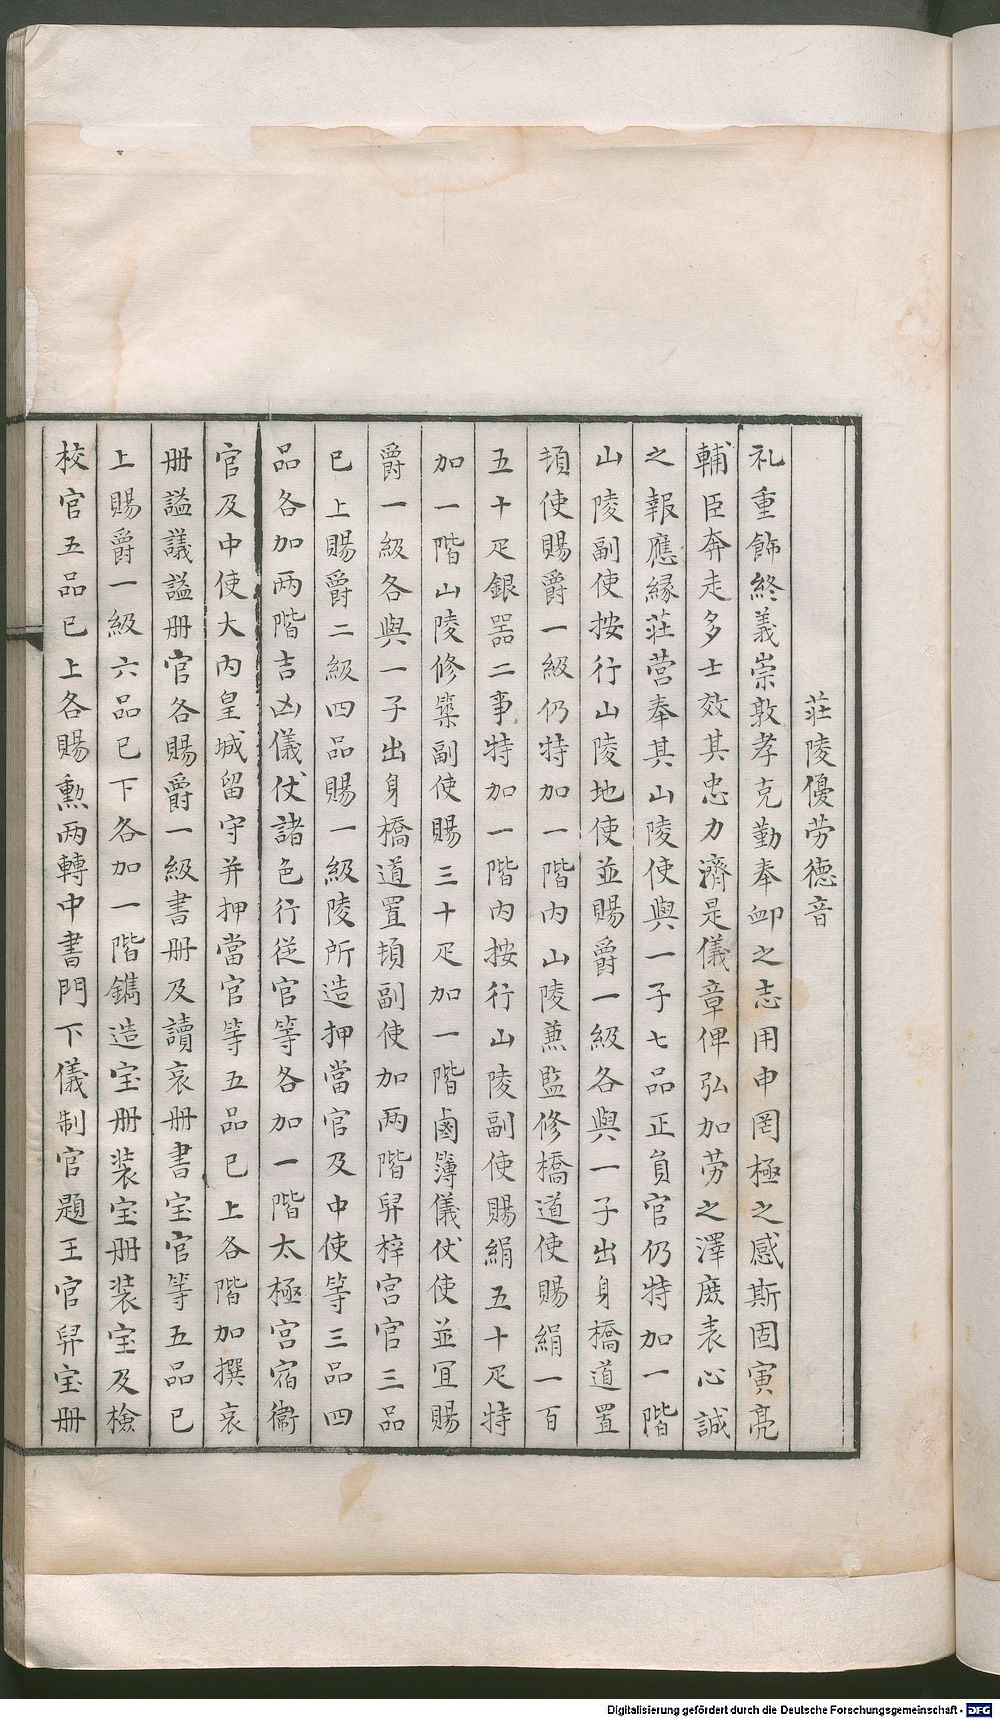 莊陵優劳德音
礼重飾終義崇敦孝克勤奉卹之志用申罔極之感斯固寅亮
輔臣奔走多士效其忠力濟是儀章俾弘加劳之澤庶表心誠
之報應緣莊營奉其山陵使與一子七品正負官仍特加一階
山陵副使按行山陵地使並賜爵一級各與一子出身橋道置
頓使賜爵一級仍特加一階内山陵兼監修橋道使賜絹一百
五十疋銀器二事特加一階内按行山陵副使賜絹五十疋特
加一階山陵修築副使賜三十疋加一階鹵簿儀仗使並宜賜
爵一級各與一子出身橋道置頓副使加两階舁梓宫官三品
已上賜爵二級四品賜一級陵所造押當官及中使等三品四
品各加两階吉凶儀仗諸色行從官等各加一階太極宫宿衞
官及中使大内皇城留守并押當官等五品已上各階加撰哀
册謚議謚册官各賜爵一級書册及讀哀册書宝官等五品已
上賜爵一級六品已下各加一階鐫造宝册装宝册装宝及檢
校官五品已上各賜勲两轉中書門下儀制官題王官舁宝册
Digitalisierung gefördert durch die Deutsche Forschungsgemeinschaft - DFG